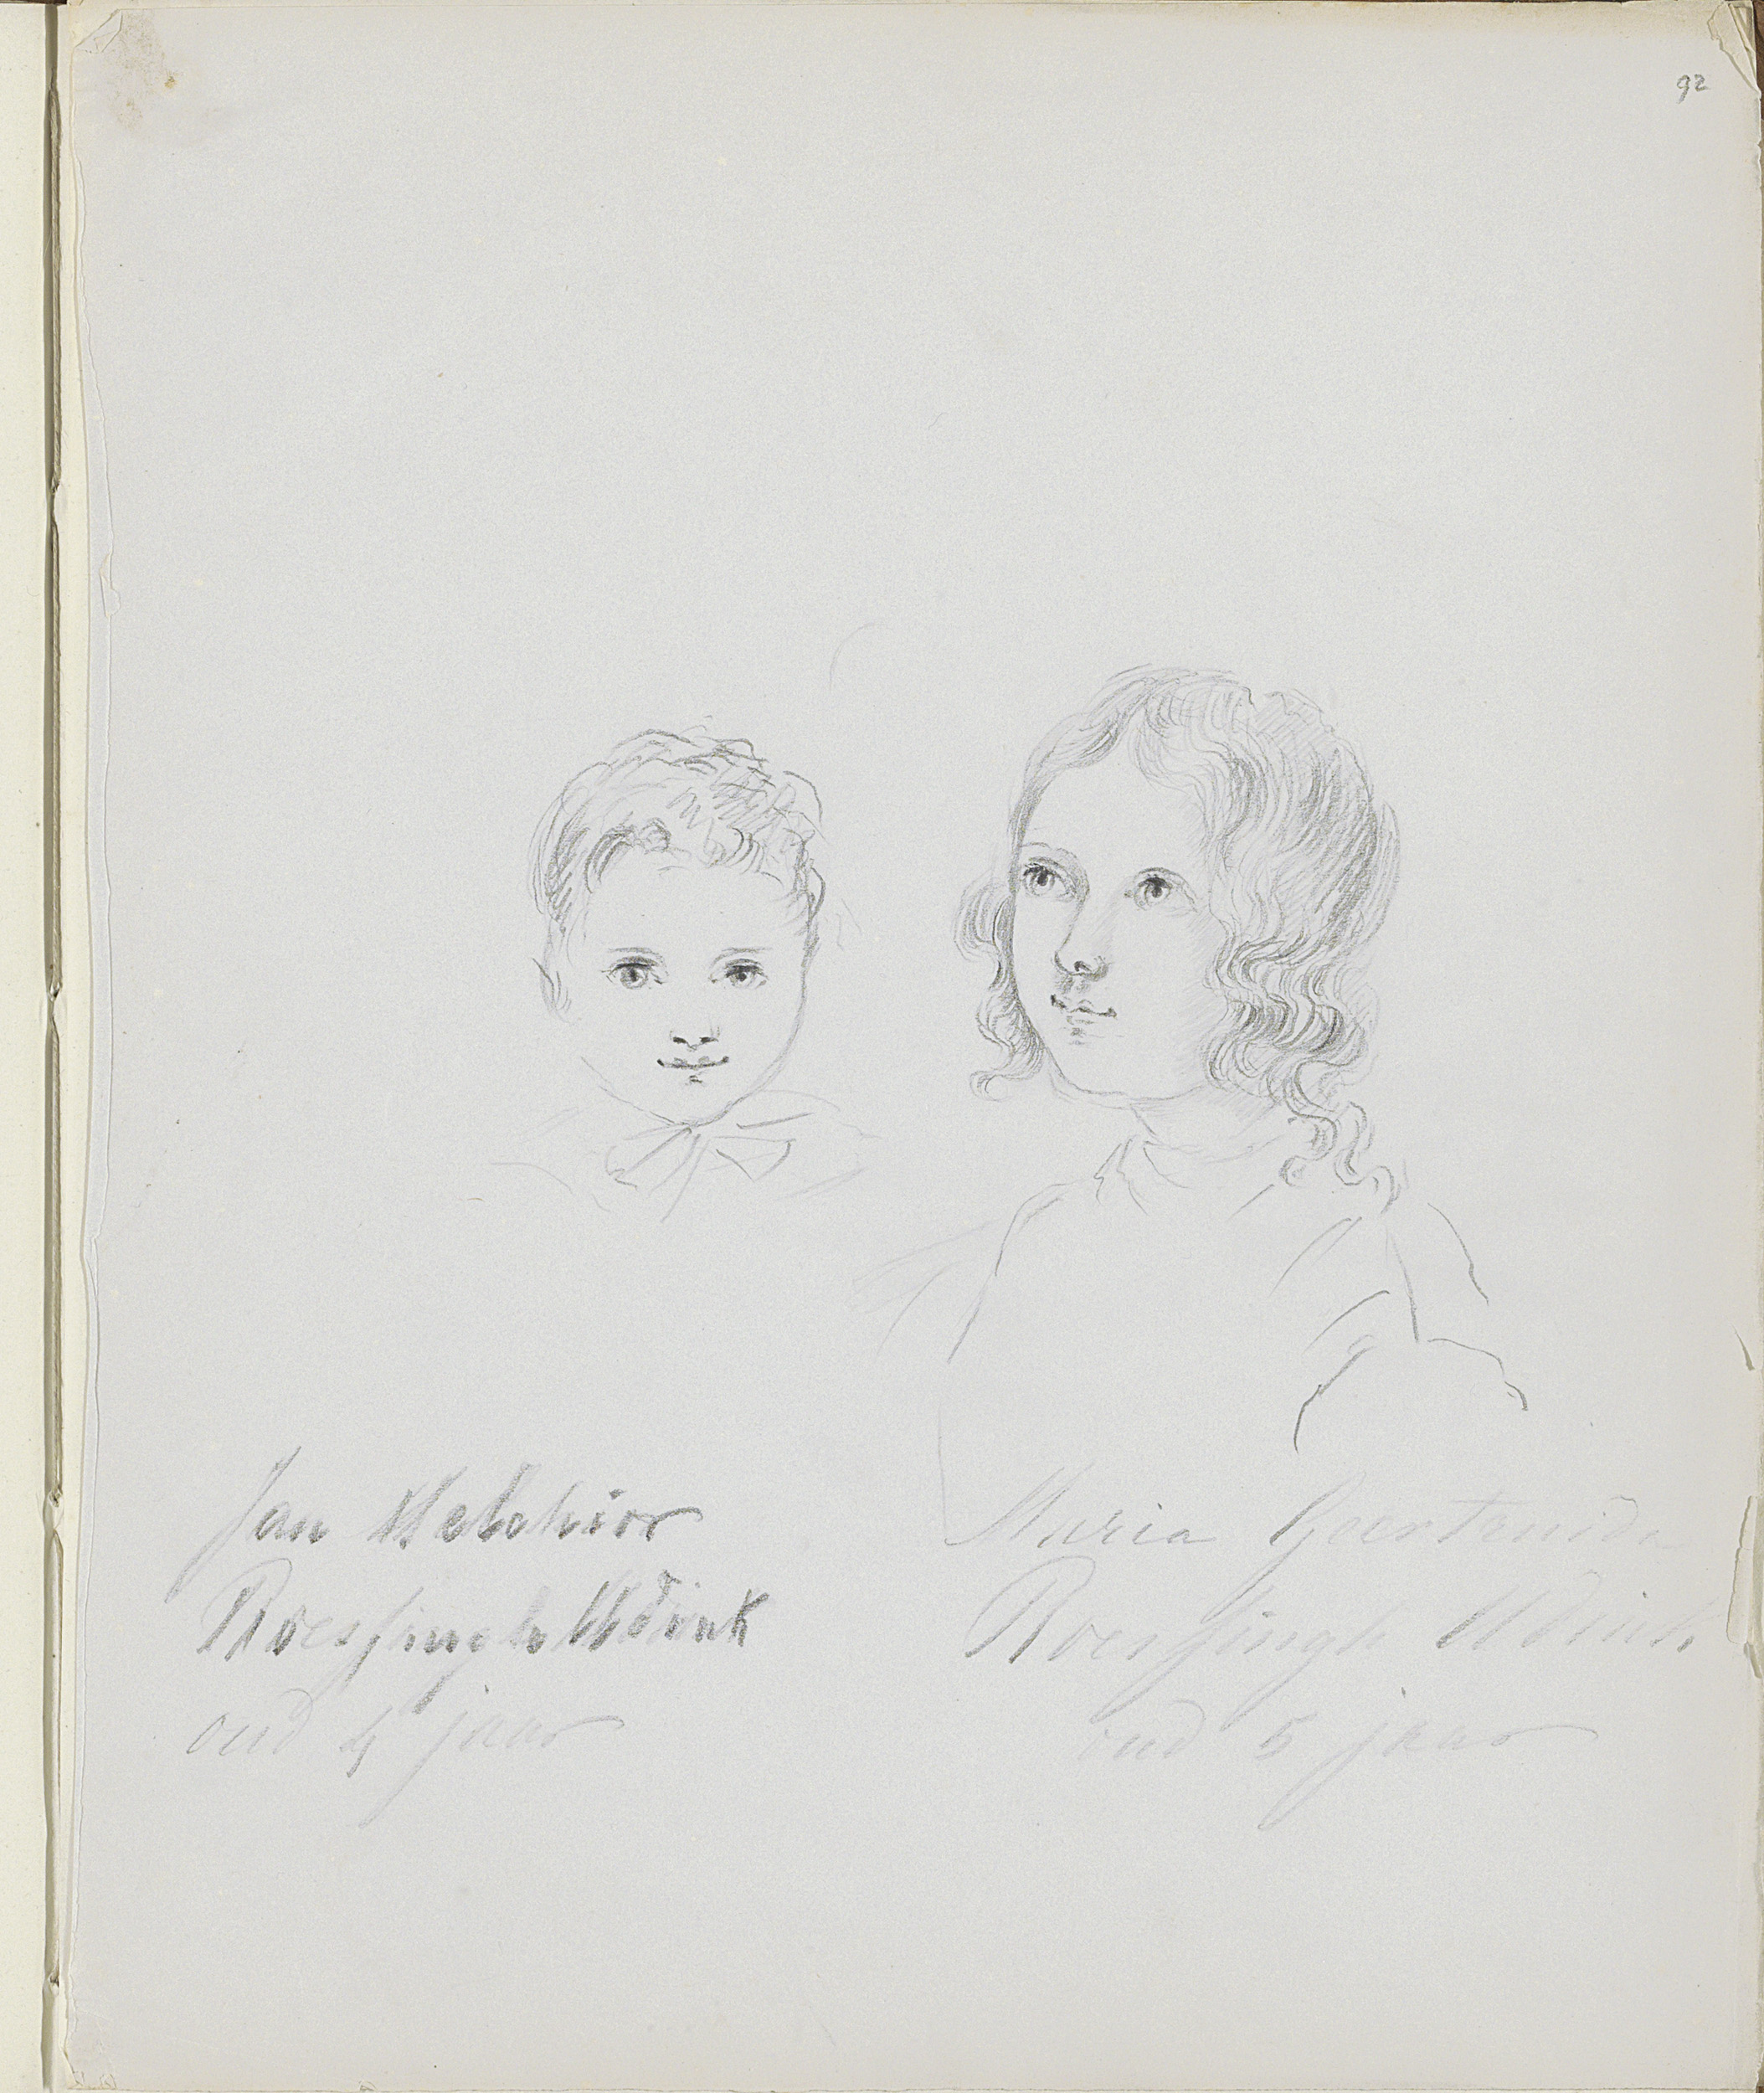 92
Jan Melchior
Roessingh Udink
oud 4 jaar
Maria Geertruida
Roessingh Udink
oud 5 jaar